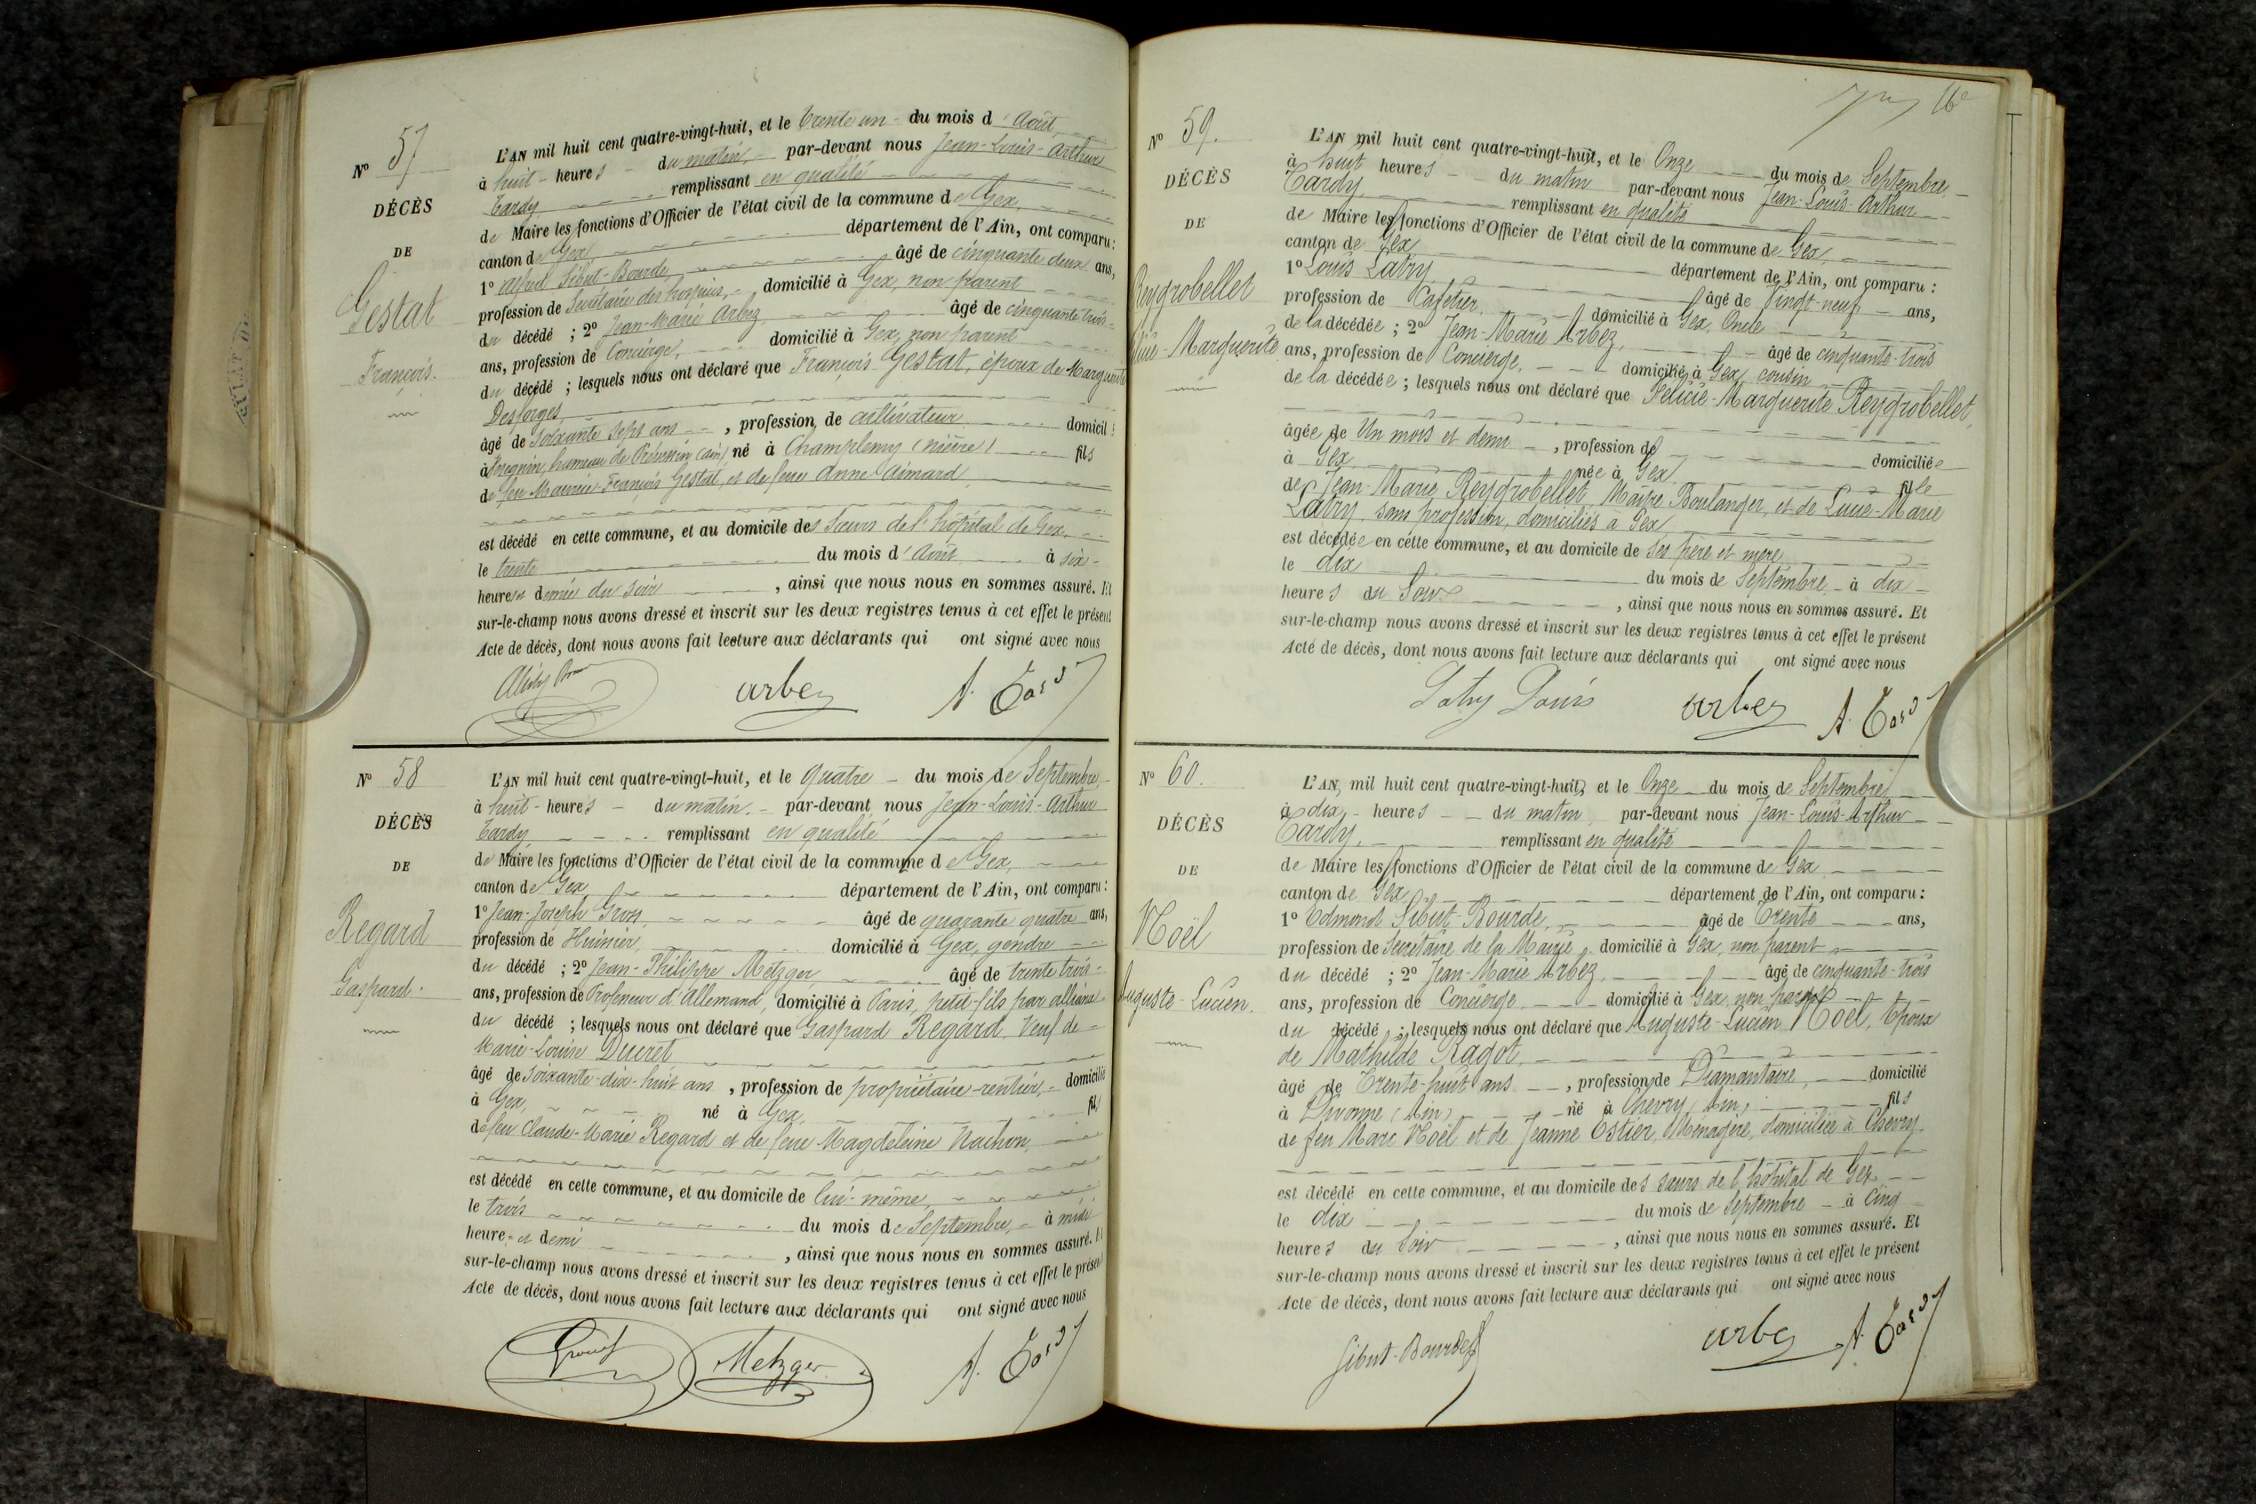 Nº 57
DÉCÈS
DE
Gestat
François.
L'AN mil huit cent quatre-vingt-huit, et le trente un du mois d'Août
à huit heures du matin, par-devant nous Jean-Louis-Arthur
Tardy remplissant en qualité
de Maire les fonctions d'Officier de l'état civil de la commune de Gex,
canton de Gex département de l'Ain, ont comparu :
1º Alfred Sibut-Bourde, âgé de cinquante deux ans,
profession de Secrétaire des hospices, domicilié à Gex, non parent
du décédé ; 2º Jean-Marie Arbez âgé de cinquante trois
ans, profession de Concierge, domicilié à Gex, non parent
du décédé ; lesquels nous ont déclaré que François Gestat, époux de Marguerite
Desforges
âgé de soixante sept ans, profession de cultivateur domicilié
à hameau de Prévessin (Ain) né à Champlemy (nièvre) fils
de feu Maurice-François Gestat, et de feue Anne Aimard
est décédé en cette commune, et au domicile des Sœurs de l'hôpital de Gex,
le trente du mois d'Août à six
heures et demie du soir, ainsi que nous nous en sommes assuré. Et
sur-le-champ nous avons dressé et inscrit sur les deux registres tenus à cet effet le présent
Acte de décès, dont nous avons fait lecture aux déclarants qui ont signé avec nous
arbez A. Tardy
Nº 58
DÉCÈS
DE
Regard
Gaspard.
L'AN mil huit cent quatre-vingt-huit, et le quatre du mois de Septembre,
à huit heures du matin. par-devant nous Jean-Louis-Arthur
Tardy remplissant en qualité
de Maire les fonctions d'Officier de l'état civil de la commune de Gex,
canton de Gex département de l'Ain, ont comparu :
1º Jean-Joseph Gros, âgé de quarante quatre ans,
profession de Huissier, domicilié à Gex, gendre
du décédé ; 2º Jean-Philippe Metzger, âgé de trente trois
ans, profession de Professeur d'allemand, domicilié à Paris, petit-fils par alliance
du décédé ; lesquels nous ont déclaré que Gaspard Regard, Veuf de
Marie-Louise Ducret
âgé de soixante-dix-huit ans, profession de propriétaire-rentier, domicilié
à Gex, né à Gex, fils
de feu Claude-Marie Regard et de feue Magdeleine Nachon,
est décédé en cette commune, et au domicile de lui-même,
le trois du mois de Septembre, à midi
heure et demi, ainsi que nous nous en sommes assuré. Et
sur-le-champ nous avons dressé et inscrit sur les deux registres tenus à cet effet le présent
Acte de décès, dont nous avons fait lecture aux déclarants qui ont signé avec nous
Metzger A. Tardy
Nº 59.
DÉCÈS
DE
Reygrobellet
Félicie-Marguerite
L'AN mil huit cent quatre-vingt-huit, et le Onze du mois de Septembre
à huit heures du matin par-devant nous Jean-Louis-Arthur
Tardy, remplissant en qualité
de Maire les fonctions d'Officier de l'état civil de la commune de Gex,
canton de Gex département de l'Ain, ont comparu :
1º Louis Latry âgé de Vingt-neuf ans,
profession de Cafetier, domicilié à Gex, Oncle
de la décédée ; 2º Jean-Marie Arbez, âgé de cinquante-trois
ans, profession de Concierge, domicilié à Gex, cousin
de la décédée ; lesquels nous ont déclaré que Félicie-Marguerite Reygrobellet,
âgée de Un mois et demi, profession de domiciliée
à Gex née à Gex fille
de Jean-Marie Reygrobellet, Maître Boulanger, et de Lucie-Marie
Latry, sans profession, domiciliés à Gex
est décédée en cette commune, et au domicile de ses père et mère
le dix du mois de Septembre à dix
heures du Soir, ainsi que nous nous en sommes assuré. Et
sur-le-champ nous avons dressé et inscrit sur les deux registres tenus à cet effet le présent
Acte de décès, dont nous avons fait lecture aux déclarants qui ont signé avec nous
Latry Louis arbez A. Tardy
Nº 60.
DÉCÈS
DE
Noël
Auguste-Lucien.
L'AN mil huit cent quatre-vingt-huit, et le Onze du mois de Septembre
à dix heures du matin par-devant nous Jean-Louis-Arthur
Tardy, remplissant en qualité
de Maire les fonctions d'Officier de l'état civil de la commune de Gex
canton de Gex département de l'Ain, ont comparu :
1º Edmond Sibut-Bourde, âgé de Trente ans,
profession de Secrétaire de la Mairie, domicilié à Gex, non parent
du décédé ; 2º Jean-Marie Arbez, âgé de cinquante-trois
ans, profession de Concierge, domicilié à Gex, non parent
du décédé ; lesquels nous ont déclaré que Auguste-Lucien Noël, Epoux
de Mathilde Ragot,
âgé de Trente-huit ans, profession de Diamantaire, domicilié
à Divonne (Ain) né à Chevry (Ain) fils
de feu Marc Noël et de Jeanne Estier, Ménagère, domiciliée à Chevry.
est décédé en cette commune, et au domicile des sœurs de l'hôpital de Gex,
le dix du mois de Septembre à Cinq
heures du Soir, ainsi que nous nous en sommes assuré. Et
sur-le-champ nous avons dressé et inscrit sur les deux registres tenus à cet effet le présent
Acte de décès, dont nous avons fait lecture aux déclarants qui ont signé avec nous
Sibut-Bourde arbez A. Tardy